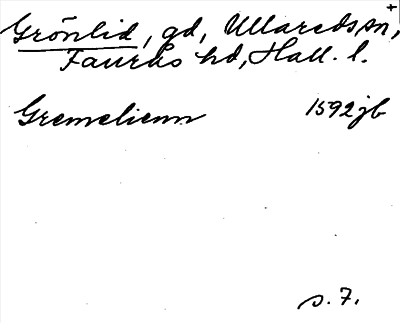 Grönlid, gd, Ullareds sn, +
Faurås hd, Hall. l.
Gremelienn 1592 jb
s. 7.